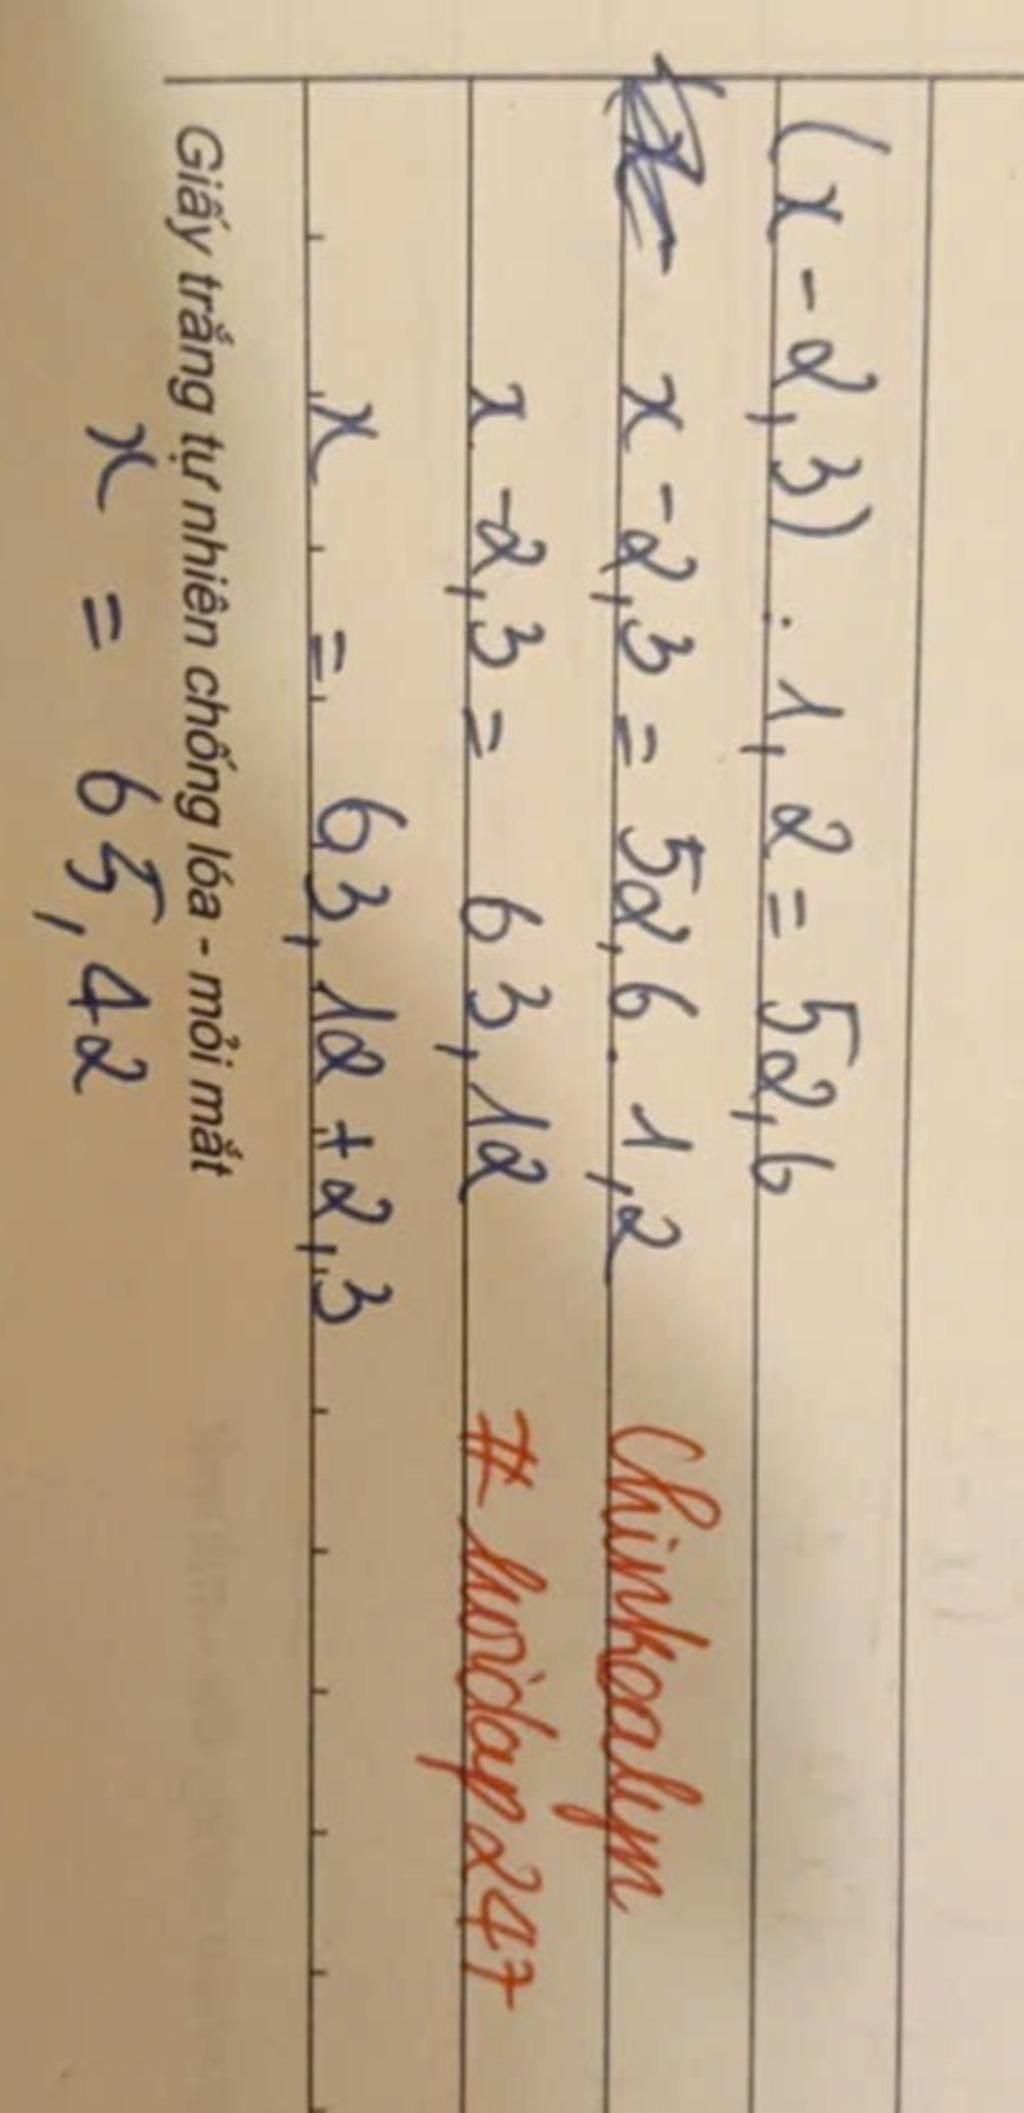 (x - 2,3) : 1,2 = 52,6
x - 2,3 = 52,6 . 1,2
Chinkoalym
x - 2,3 = 63,12
# hoidap247
x = 63,12 + 2,3
Giấy trắng tự nhiên chống lóa - mỏi mắt
x = 65,42